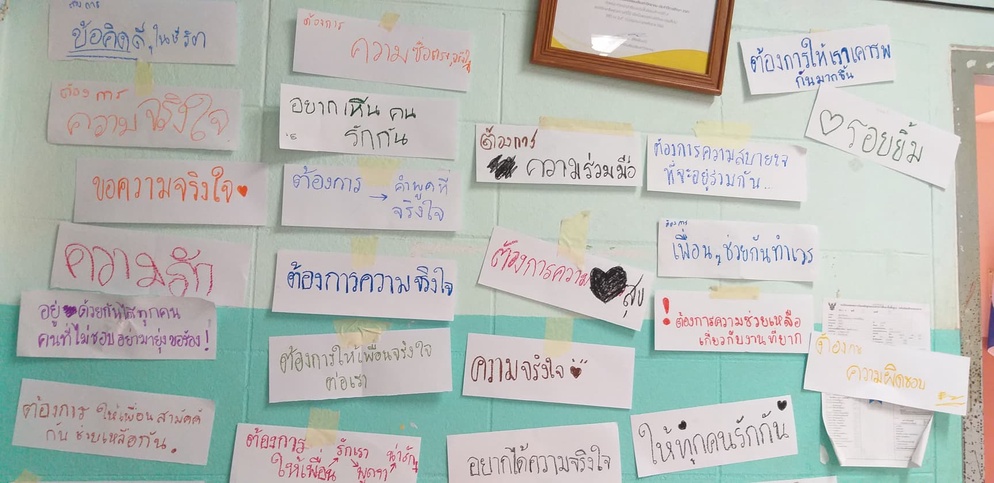 ต้องการ
ข้อคิดดี ๆ ในชีวิต
ต้องการ
ความจริงใจ
ขอความจริงใจ
ความรัก
อยู่ด้วยกันได้ทุกคน
คนที่ไม่ชอบ อย่ามายุ่ง ขอร้อง!
ต้องการ ให้เพื่อน สามัคคี
กัน ช่วยเหลือกัน.
ต้องการ
ความ
อยากเห็น คน
รักกัน
ต้องการ → คำพูดที่
จริงใจ
ต้องการความจริงใจ
ต้องการให้เพื่อนจริงใจ
ต่อเรา
ต้องการ รักเรา
ให้เพื่อน พูดจา น่ารัก
ต้องการ
ความร่วมมือ
ต้องการความสุข
ความจริงใจ
อยากได้ความจริงใจ
ต้องการให้เราเคารพ
กันมากขึ้น
รอยยิ้ม
ต้องการความสบายใจ
ที่จะอยู่ร่วมกัน..
ต้องการ
เพื่อน ๆ ช่วยกันทำเวร
! ต้องการความช่วยเหลือ
เกี่ยวกับงานที่ยาก
ต้องการ
ความผิดชอบ
ให้ทุกคนรักกัน